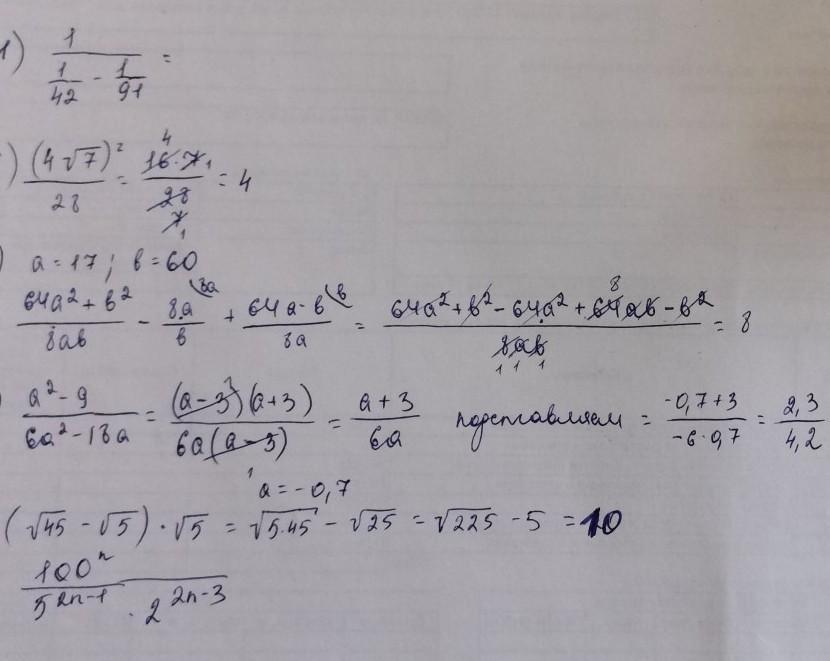 1) 1 / (1/42 - 1/91) =
) (4√7)² / 28 = 16·7 / 28 = 4
) a = 17; b = 60
(64a² + b²) / 8ab - 8a / b + (64a - b) / 8a = (64a² + b² - 64a² + 64ab - b²) / 8ab = 8
) (a² - 9) / (6a² - 18a) = (a - 3)(a + 3) / 6a(a - 3) = (a + 3) / 6a подставляем = (-0,7 + 3) / (-6·0,7) = 2,3 / 4,2
a = -0,7
(√45 - √5) · √5 = √5·45 - √25 = √225 - 5 = 10
100ⁿ / 5²ⁿ⁻¹ · 2²ⁿ⁻³